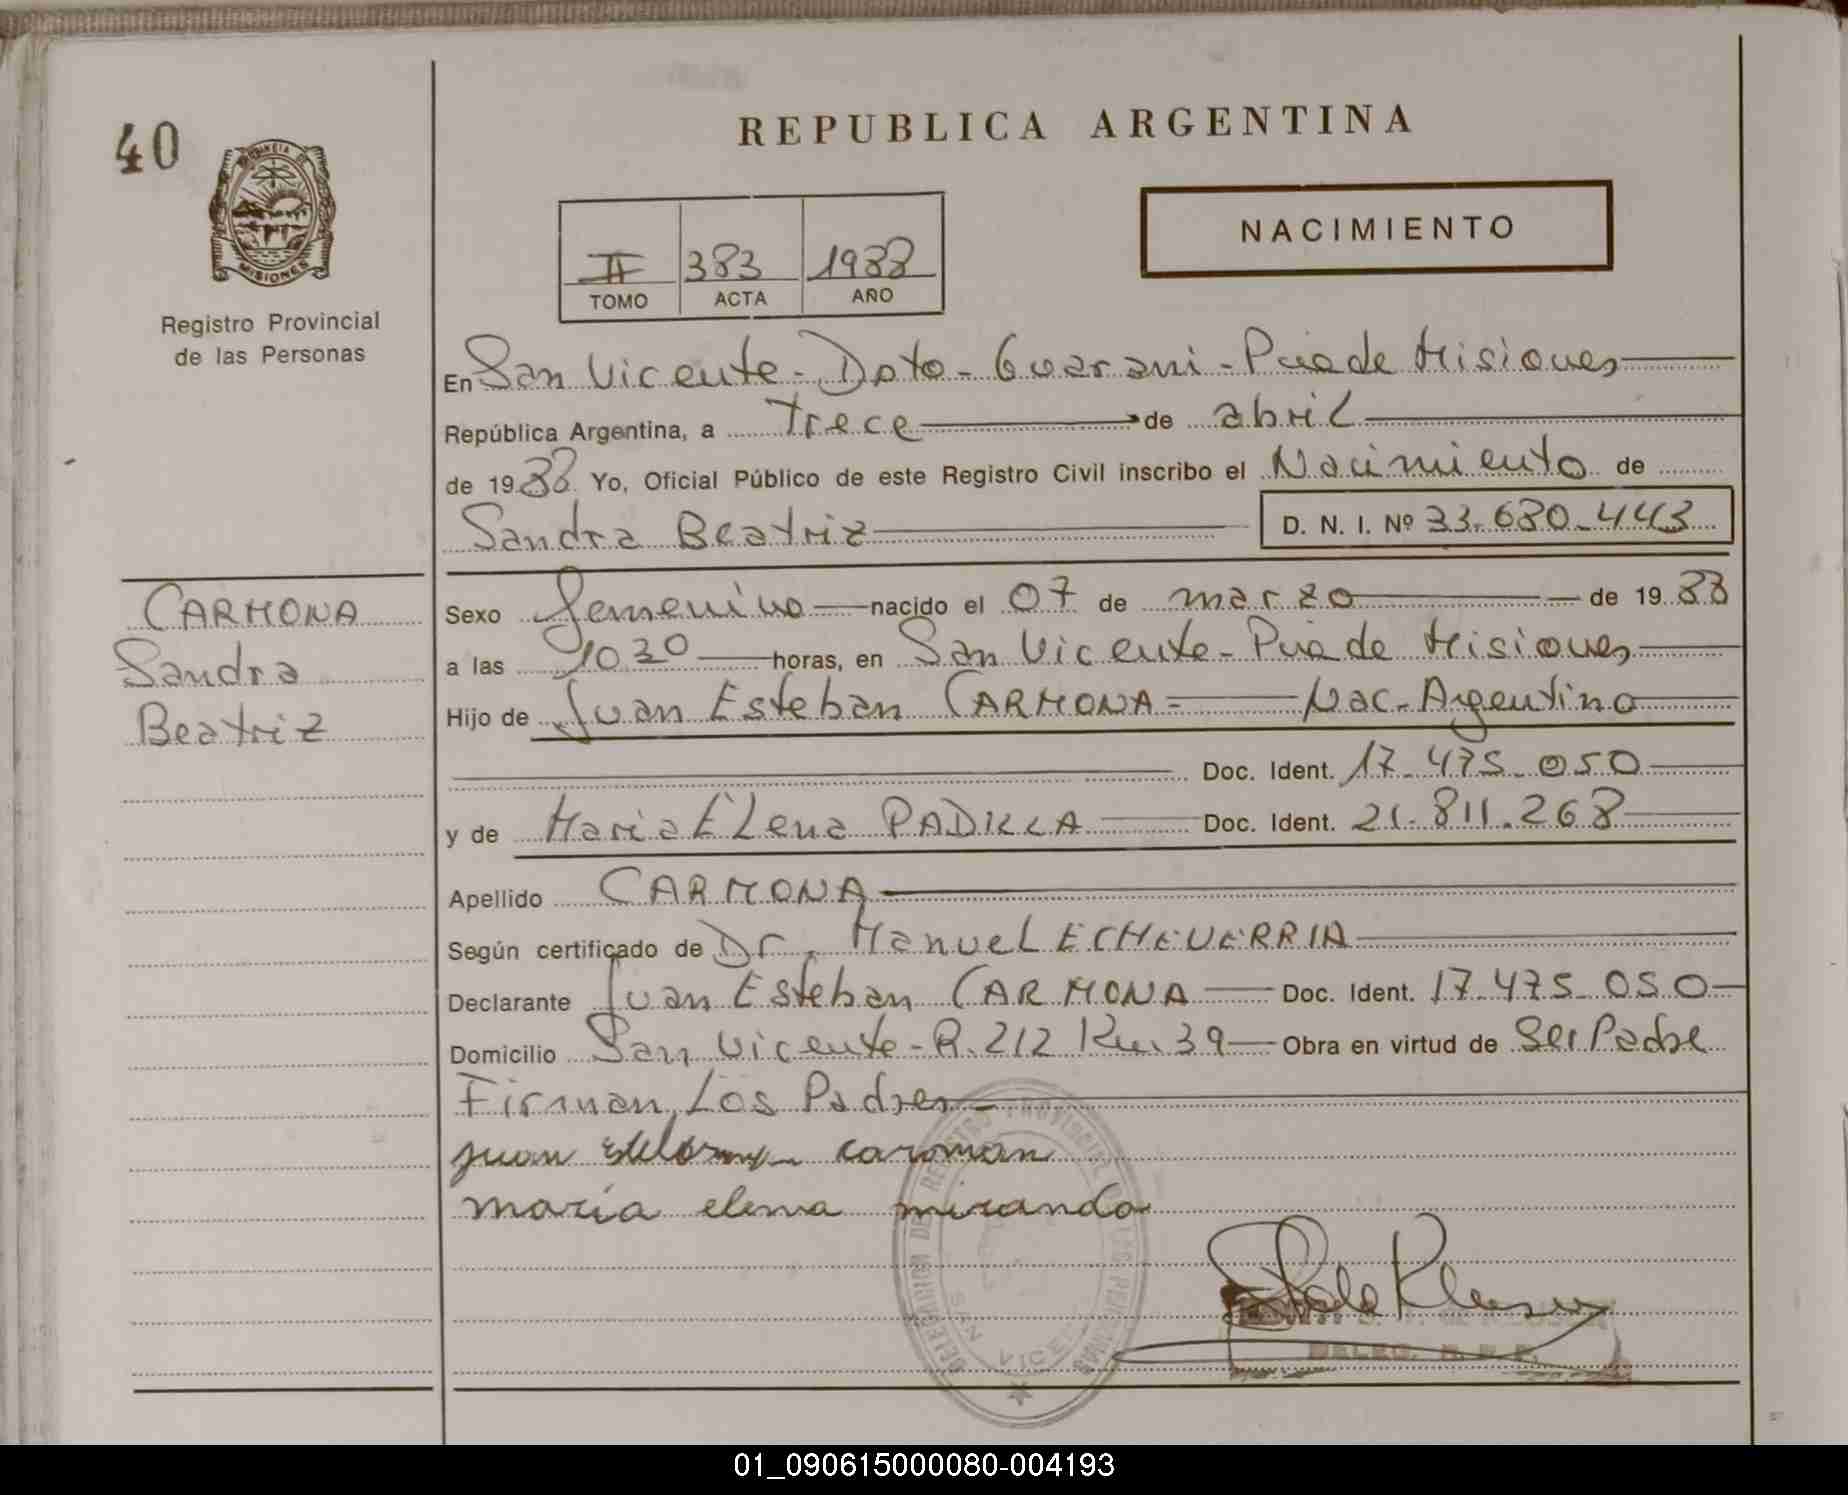 40
REPUBLICA ARGENTINA
PROVINCIA DE
MISIONES
Registro Provincial
de las Personas
II 383 1988
TOMO ACTA AÑO
NACIMIENTO
En San Vicente - Dpto - Guarani - Pcia de Misiones
República Argentina, a trece de abril
de 1988 Yo, Oficial Público de este Registro Civil inscribo el Nacimiento de
Sandra Beatriz D. N. I. Nº 33.680.443
CARMONA
Sandra
Beatriz
Sexo femenino nacido el 07 de marzo de 1988
a las 1030 horas, en San Vicente - Pcia de Misiones
Hijo de Juan Esteban CARMONA - Nac. Argentino
Doc. Ident. 17.475.050
y de Maria Elena PADILLA Doc. Ident. 21.811.268
Apellido CARMONA
Según certificado de Dr. Manuel ECHEVERRIA
Declarante Juan Esteban CARMONA Doc. Ident. 17.475.050
Domicilio San Vicente - R. 212 Km. 39 Obra en virtud de Ser Padre
Firman Los Padres -
juan carman
maria elena miranda
DELEGACION DE REGISTRO PROVINCIAL DE LAS PERSONAS
SAN VICENTE
DELEG. R. P. P.
01_090615000080-004193